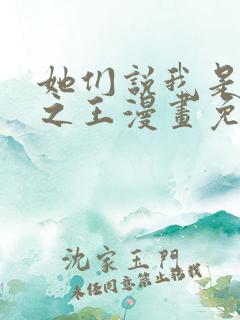 她们說我是
之王漫畫免
沈家玉門
未经同意禁止转载